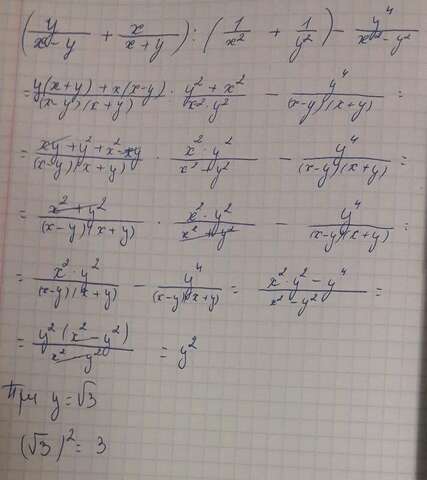 (y/(x-y) + x/(x+y)) : (1/x² + 1/y²) - y⁴/(x²-y²)
= (y(x+y) + x(x-y))/((x-y)(x+y)) · (y² + x²)/(x²·y²) - y⁴/((x-y)(x+y)) =
= (xy + y² + x² - xy)/((x-y)(x+y)) · (x²·y²)/(x²+y²) - y⁴/((x-y)(x+y)) =
= (x² + y²)/((x-y)(x+y)) · (x²·y²)/(x²+y²) - y⁴/((x-y)(x+y)) =
= (x²·y²)/((x-y)(x+y)) - y⁴/((x-y)(x+y)) = (x²·y² - y⁴)/(x²-y²) =
= (y²(x² - y²))/(x² - y²) = y²
При y = √3
(√3)² = 3